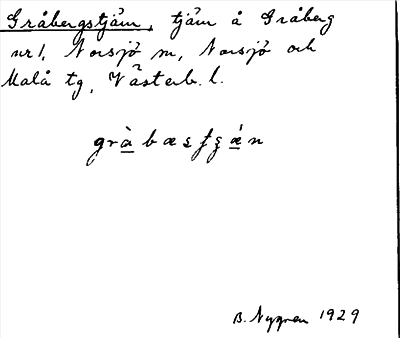 Gråbergstjärn, tjärn å Gråberg
nr 1, Norsjö sn, Norsjö och
Malå tg, Västerb. l.
B. Nygren 1929